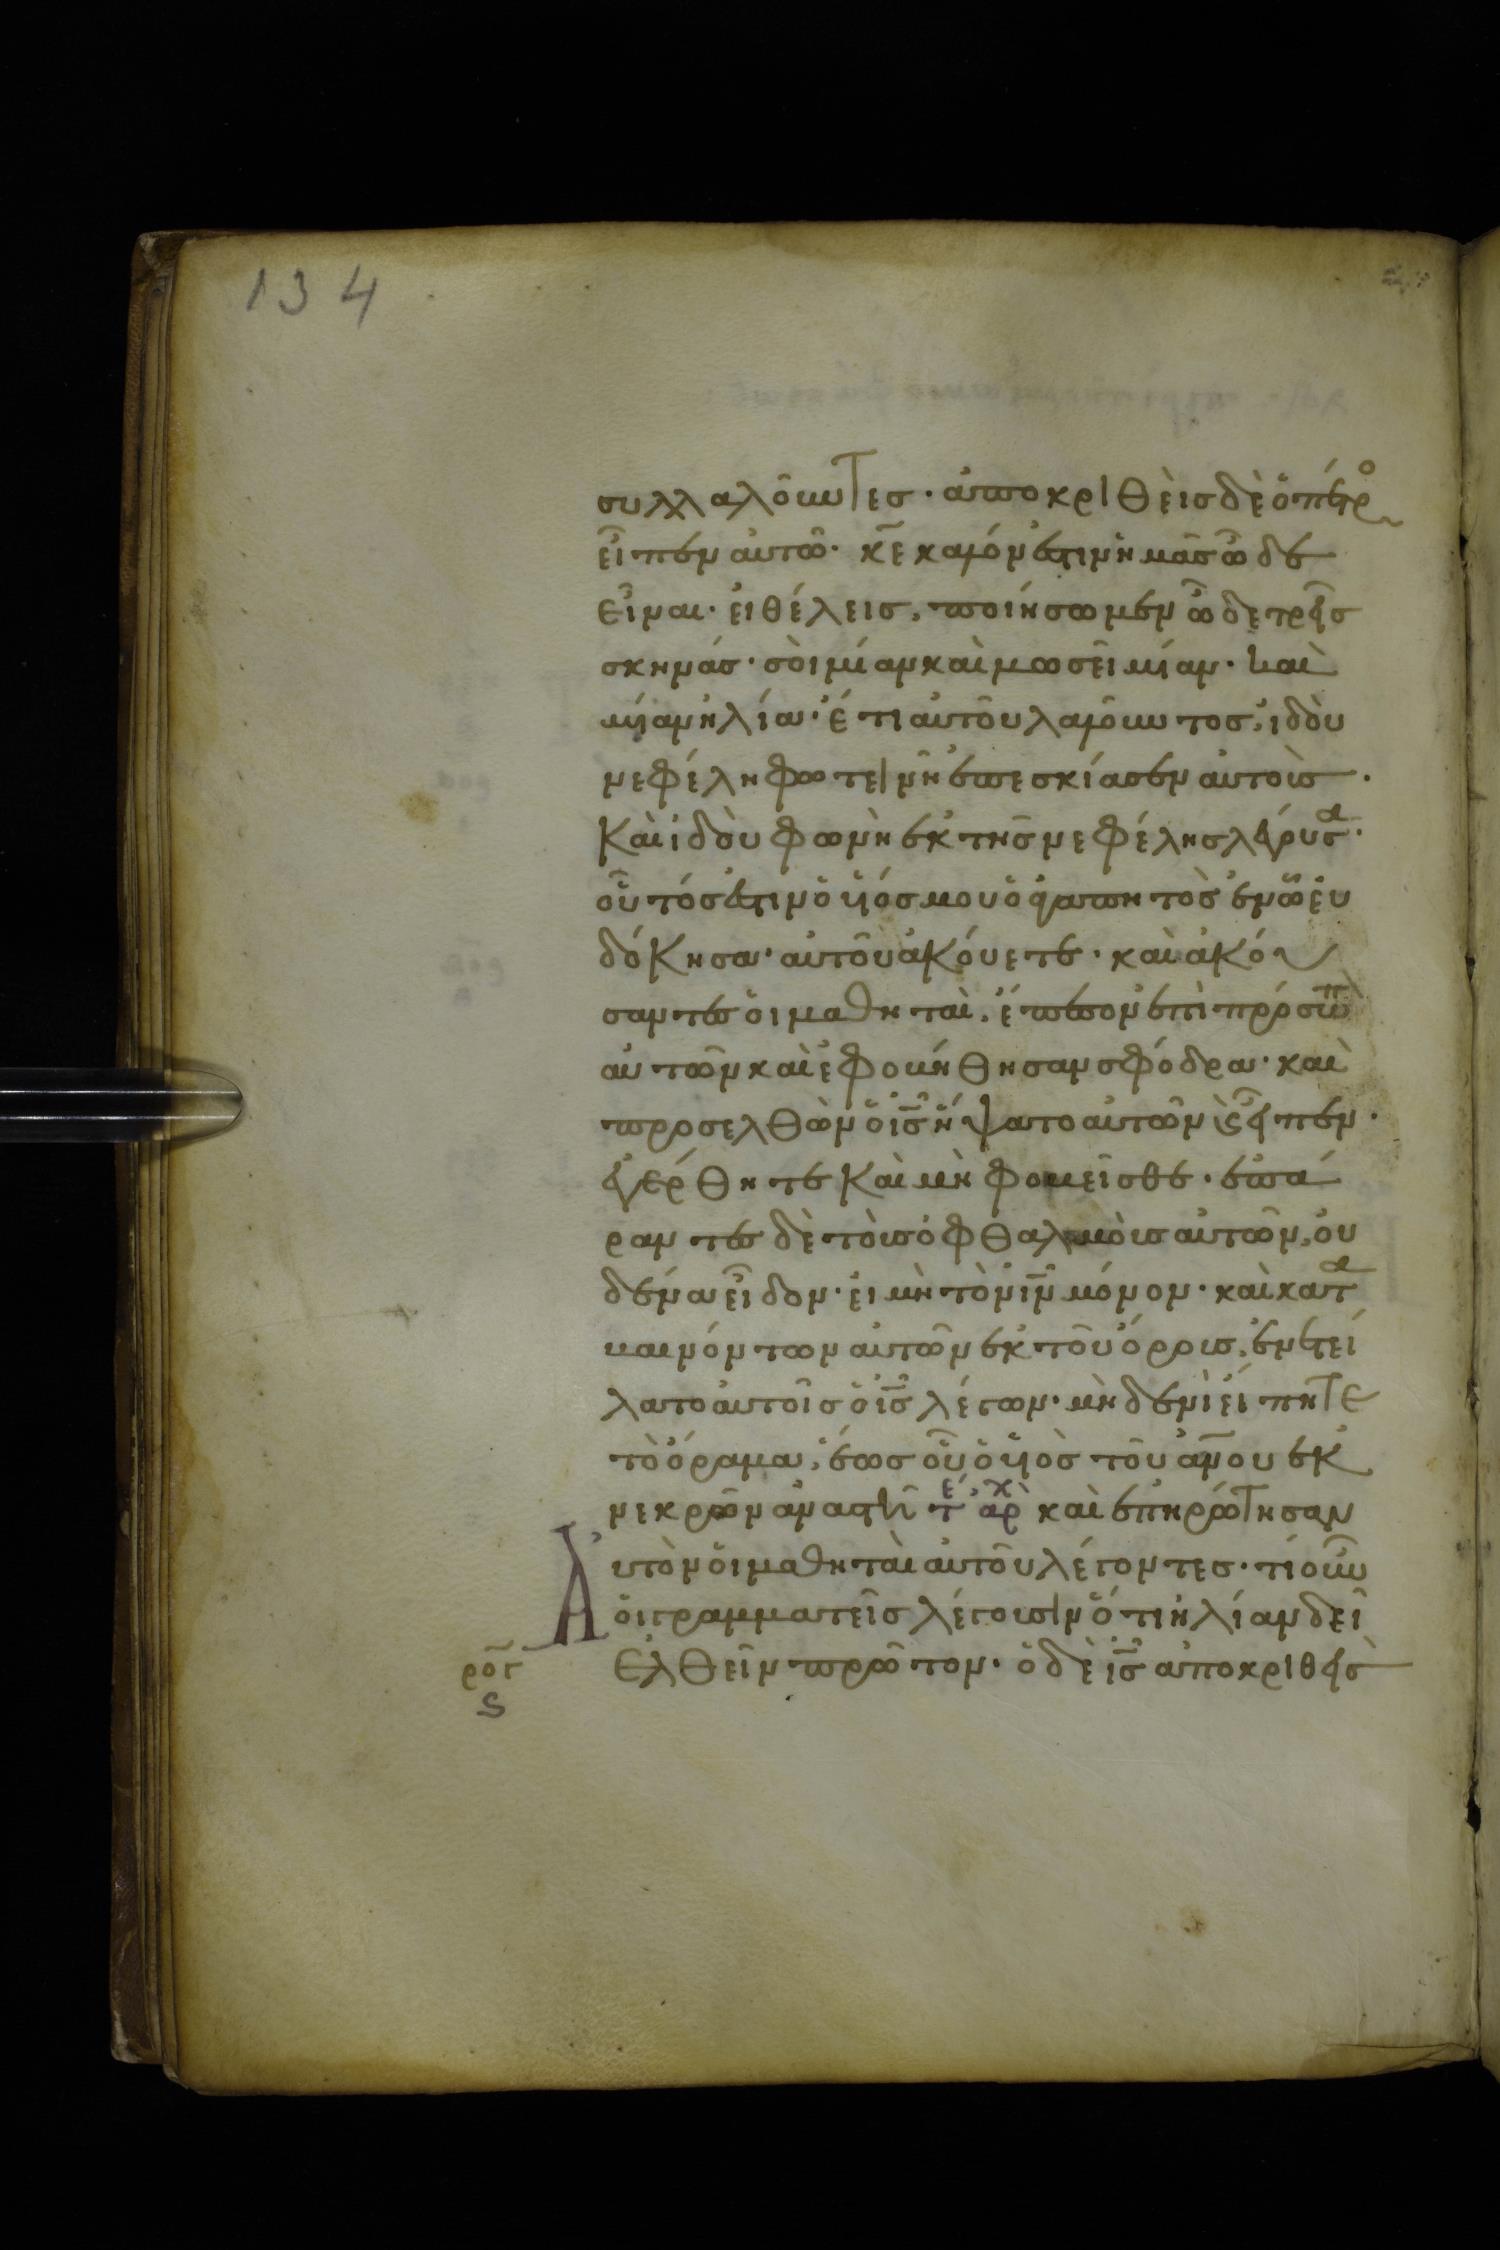 134
συλλαλοῦντες· ἀποκριθεὶς δὲ ὁ πέτρο
εἶπεν αὐτῶ· κε καλόν ἐστιν ἡμᾶς ὧδε
εἶναι· εἰ θέλεις, ποιήσωμεν ὧδε τρεῖς
σκηνάς· σοὶ μίαν καὶ μωσεῖ μίαν· καὶ
μίαν ἡλία· ἔτι αὐτοῦ λαλοῦντος, ἰδοὺ
νεφέλη φωτεινὴ ἐπεσκίασεν αὐτοὺς·
καὶ ἰδοὺ φωνὴ ἐκ τῆς νεφέλης λέγουσα·
οὗτός ἐστιν ὁ υἱός μου ὁ ἀγαπητὸς ἐν ὧ εὐ
δόκησα· αὐτοῦ ἀκούετε· καὶ ἀκού
σαντες οἱ μαθηταὶ, ἔπεσον ἐπὶ πρόσωπ
αὐτῶν καὶ ἐφοβήθησαν σφόδρα· καὶ
προσελθὼν ὁ ις ἥψατο αὐτῶν ϗ εἶπεν·
ἐγέρθητε καὶ μὴ φοβεῖσθε· ἐπά
ραντες δὲ τοὺς ὀφθαλμοὺς αὐτῶν, οὐ
δένα εἶδον· εἰ μὴ τὸν ιν μόνον· καὶ κατα
βαινόντων αὐτῶν ἐκ τοῦ ὄρους, ἐνετεί
λατο αὐτοῖς ὁ ις λέγων· μηδενὶ εἴπητε
τὸ ὅραμα, ἕως οὗ ὁ υἱὸς τοῦ ανου ἐκ
νεκρῶν ἀναστῆ τέ ἀρχ καὶ ἐπηρώτησαν
Αὐτὸν οἱ μαθηταὶ αὐτοῦ λέγοντες· τί οὖν
οἱ γραμματεῖς λέγουσιν ὅτι ἡλίαν δεῖ
ρογ ἐλθεῖν πρῶτον· ὁ δὲ ις ἀποκριθεὶς
ς